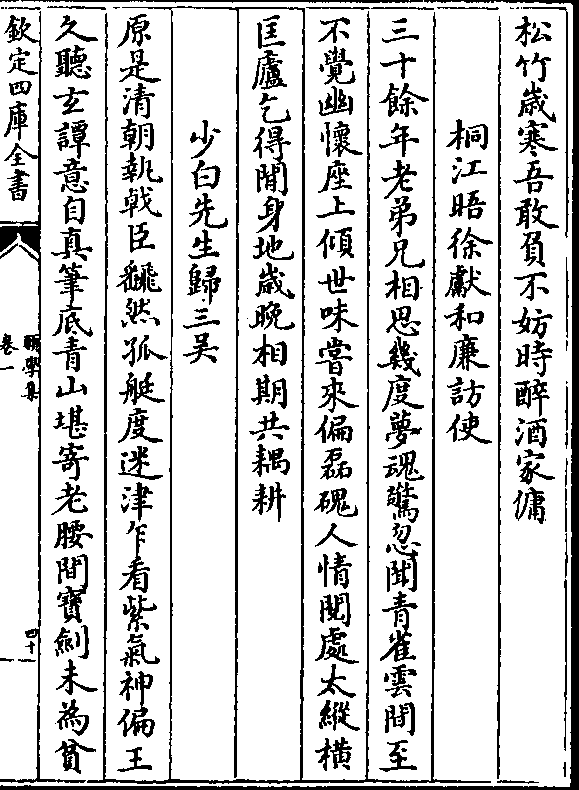 松竹歳寒吾敢負不妨時醉酒家傭
桐江晤徐獻和廉訪使
三十餘年老弟兄相思幾度夢魂驚忽聞青雀雲間至
不覺幽懷座上傾世味嘗來偏磊磈人情閱處太縱橫
匡廬乞得閒身地歳晚相期共耦耕
少白先生歸三吳
原是清朝執戟臣飜然孤艇度迷津乍看紫氣神偏王
久聽玄譚意自真筆底青山堪寄老腰間寶劍未為貧
欽定四庫全書
學集
卷一
四十